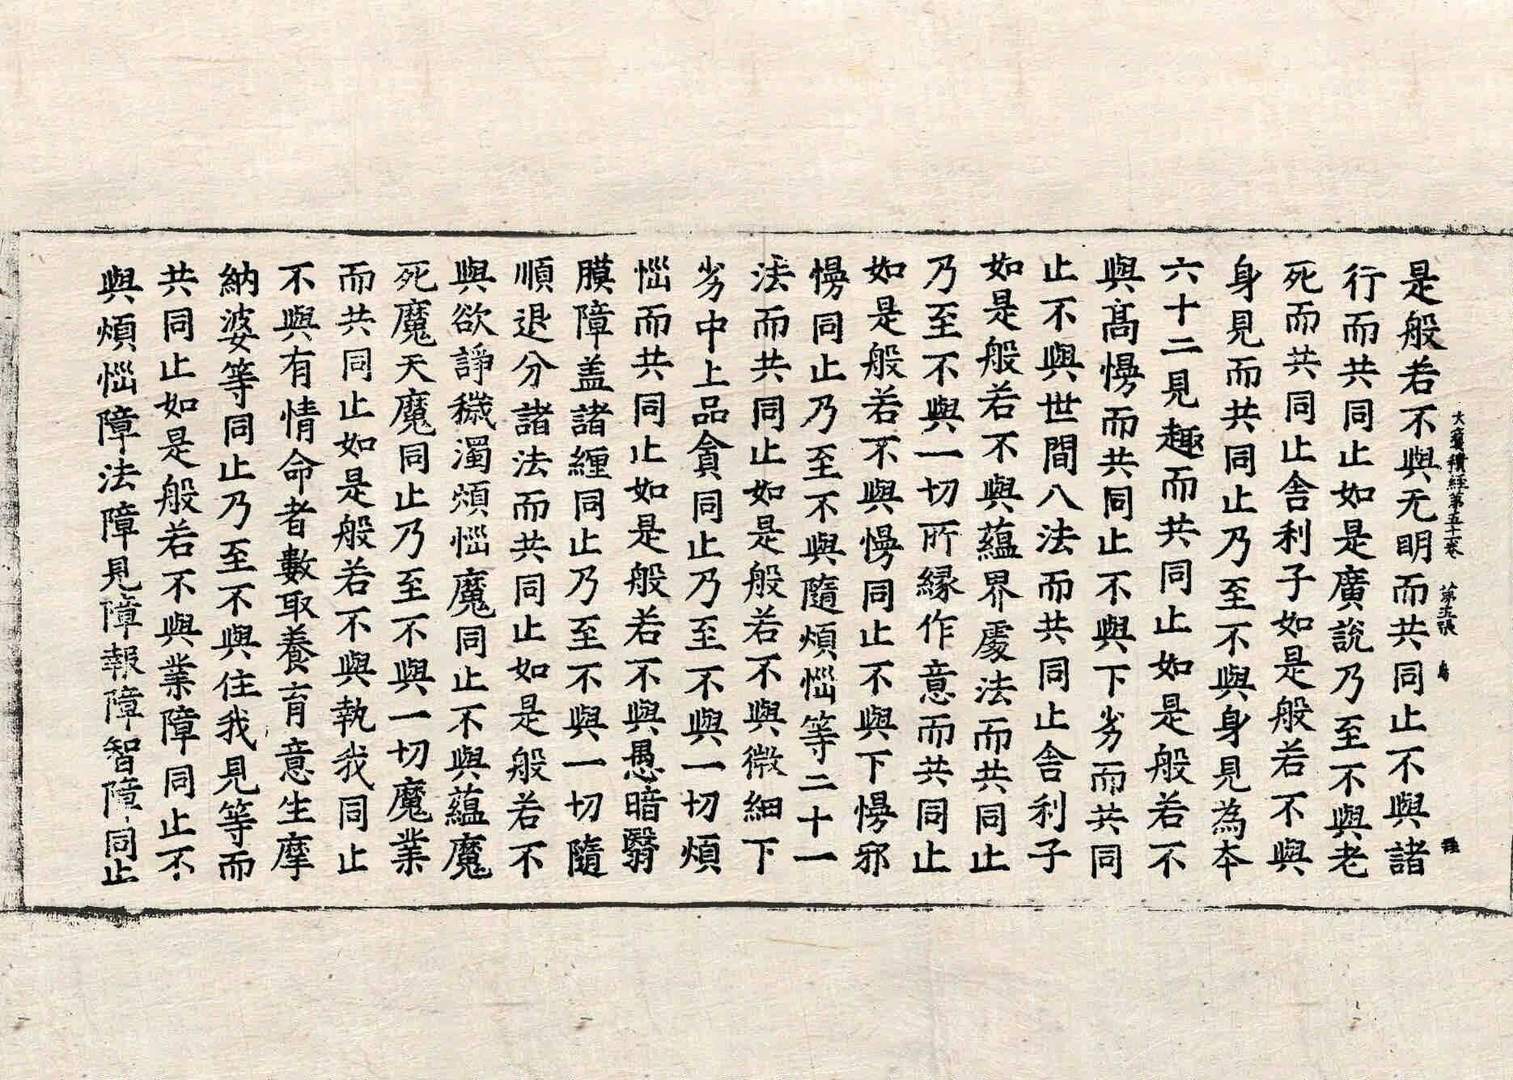 大寶積經第五十卷 第五張
是般若不與无明而共同止不與諸
行而共同止如是廣說乃至不與老
死而共同止舍利子如是般若不與
身見而共同止乃至不與身見為本
六十二見趣而共同止如是般若不
與髙慢而共同止不與下劣而共同
止不與世間八法而共同止舍利子
如是般若不與蘊界處法而共同止
乃至不與一切所縁作意而共同止
如是般若不與慢同止不與下慢邪
慢同止乃至不與隨煩惱等二十一
法而共同止如是般若不與微細下
劣中上品貪同止乃至不與一切煩
惱而共同止如是般若不與愚暗翳
膜障盖諸纏同止乃至不與一切隨
順退分諸法而共同止如是般若不
與欲諍穢濁煩惱魔同止不與蘊魔
死魔天魔同止乃至不與一切魔業
而共同止如是般若不與執我同止
不與有情命者數取養育意生摩
納婆等同止乃至不與住我見等而
共同止如是般若不與業障同止不
與煩惱障法障見障報障智障同止